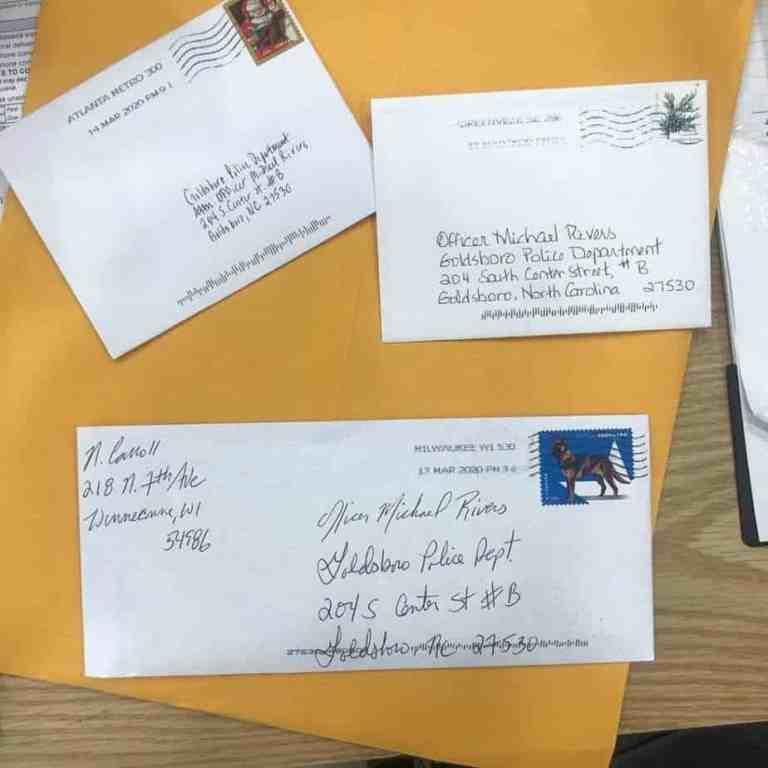 ATLANTA METRO 300
14 MAR 2020 PM 9 1
Goldsboro Police Department
Attn: Officer Michael Rivers
204 S. Center St. #B
Goldsboro, NC 27530
GREENVILLE SC 296
Officer Michael Rivers
Goldsboro Police Department
204 South Center Street, # B
Goldsboro, North Carolina 27530
N. Carroll
218 N. 7th Ave
Winneconne, WI
54986
MILWAUKEE WI 530
17 MAR 2020 PM 3
Officer Michael Rivers
Goldsboro Police Dept.
204 S Center St #B
Goldsboro, NC 27530